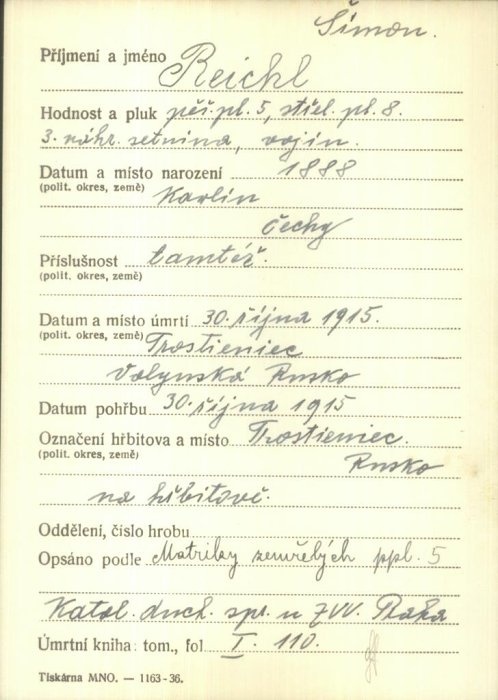 Šimon.
Příjmení a jméno Reichl
Hodnost a pluk pěš. pl. 5, střel. pl. 8.
3. náhr. setnina, vojín.
Datum a místo narození 1888
(polit. okres, země) Karlín
Čechy
Příslušnost tamtéž.
(polit. okres, země)
Datum a místo úmrtí 30. října 1915.
(polit. okres, země) Trostieniec
Volynská Rusko
Datum pohřbu 30. října 1915
Označení hřbitova a místo Trostieniec.
(polit. okres, země) Rusko
na hřbitově.
Oddělení, číslo hrobu
Opsáno podle Matriky zemřelých ppl. 5
Katol. duch. spr. u ZVV. Praha
Úmrtní kniha: tom., fol I. 110.
Tiskárna MNO. — 1163-36.